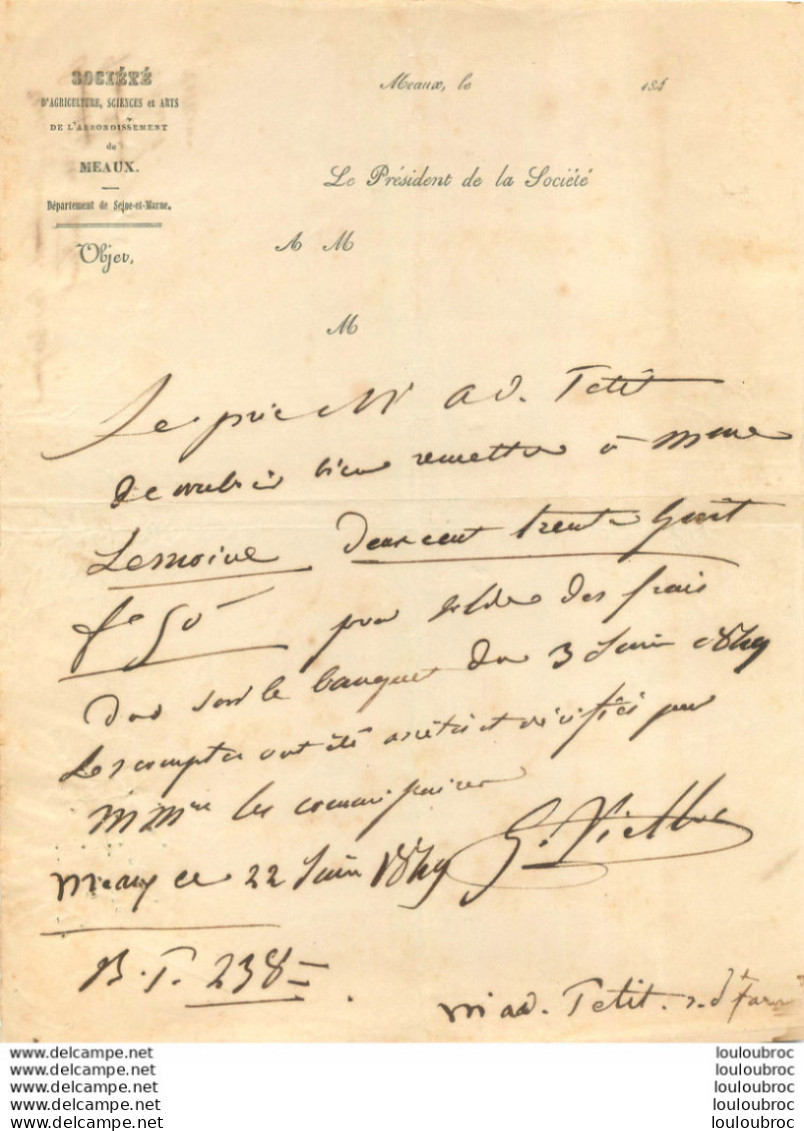 SOCIÉTÉ
D'AGRICULTURE, SCIENCES et ARTS
DE L'ARRONDISSEMENT
de
MEAUX.
Département de Seine-et-Marne.
Objet,
Meaux, le 184
Le Président de la Société
A M
M
Je prie Mr Ad. Petit
de vouloir bien remettre à Mme
Lemoine deux cent trente huit
fr 50 pour solde des frais
du banquet du 3 Juin 1849
Les comptes ont été arrêtés et vérifiés par
MMrs les commissaires
Meaux ce 22 Juin 1849 G. Viellot
B. P. 238
M ad. Petit. r. St
www.delcampe.net louloubroc
www.delcampe.net louloubroc
www.delcampe.net louloubroc
www.delcampe.net louloubroc
www.delcampe.net louloubroc